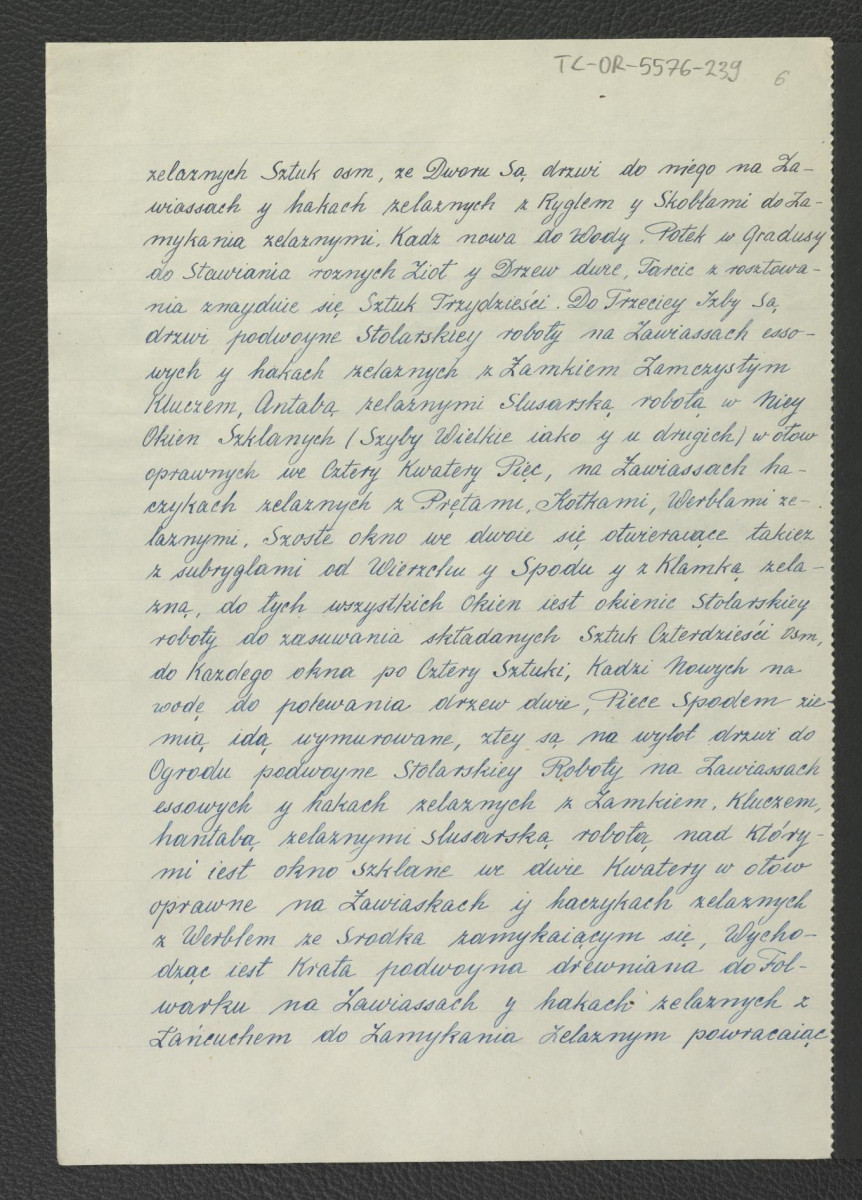 TC-OR-5576-239
6
zelaznych Sztuk osm, ze Dworu Są drzwi do niego na Za-
wiassach y hakach zelaznych z Ryglem y Skoblami do Za-
mykania zelaznymi. Kadz nowa do Wody. Połek w Gradusy
do Stawiania roznych Zioł y Drzew dwie, Tarcic z rosztowa-
nia znayduie się Sztuk Trzydzieści. Do Trzeciey Izby Są
drzwi podwoyne Stolarskiey roboty na Zawiassach esso-
wych y hakach zelaznych z Zamkiem Zamczystym
Kluczem, Antabą zelaznymi Slusarską robota w Niey
Okien Szklanych (Szyby Wielkie iako y u drugich) w ołow
oprawnych we Cztery Kwatery Pięc, na Zawiassach ha-
czykach zelaznych z Prętami, Kołkami, Werblami ze-
laznymi, Szoste okno we dwoie się otwieraiące takiez
z subryglami od Wierzchu y Spodu y z Klamką zela-
zną, do tych wszystkich Okien iest okienic Stolarskiey
roboty do zasuwania składanych Sztuk Czterdzieści osm,
do Kazdego okna po Cztery Sztuki, Kadzi Nowych na
wodę do polewania drzew dwie, Piece Spodem zie-
mią idą wymurowane, ztey są na wylot drzwi do
Ogrodu podwoyne Stolarskiey Roboty na Zawiassach
essowych y hakach zelaznych z Zamkiem, Kluczem,
hantabą zelaznymi slusarską robotą nad który-
mi iest okno szklane we dwie Kwatery w ołów
oprawne na Zawiaskach y haczykach zelaznych
z Werblem ze Srodka zamykaiącym się, Wycho-
dząc iest Krata podwoyna drewniana do Fol-
warku na Zawiassach y hakach zelaznych z
Łańcuchem do Zamykania Zelaznym powracaiąc